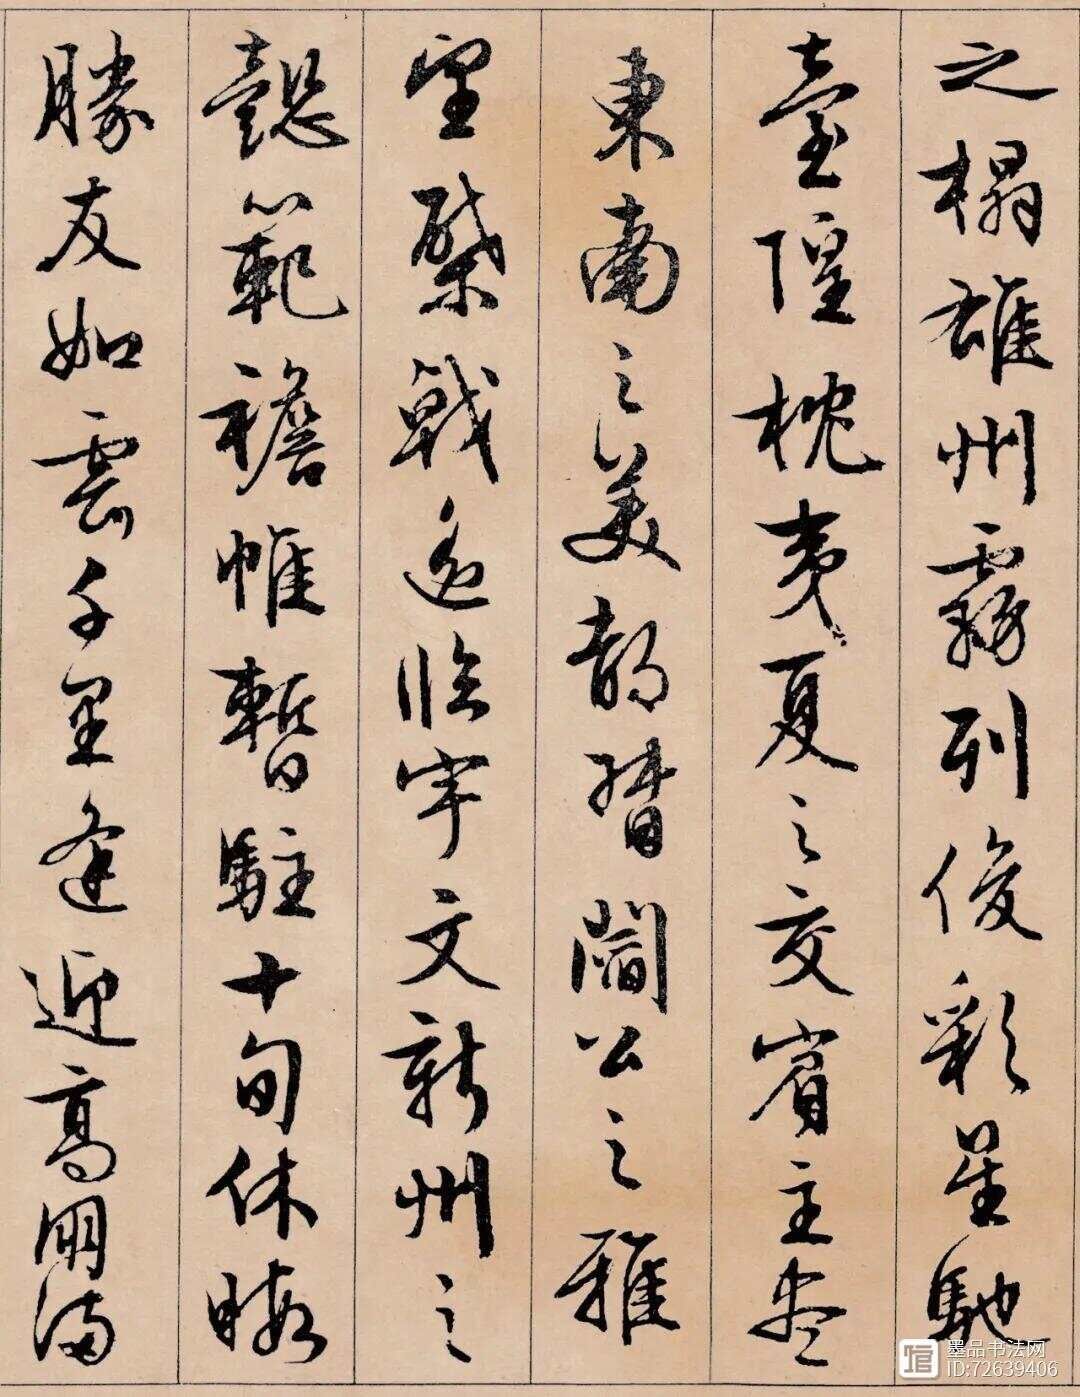 之榻雄州霧列俊彩星馳
臺隍枕夷夏之交賓主盡
東南之美都督閻公之雅
望棨戟遥臨宇文新州之
懿範襜帷暫駐十旬休暇
勝友如雲千里逢迎高朋滿
墨品书法网
ID:72639406